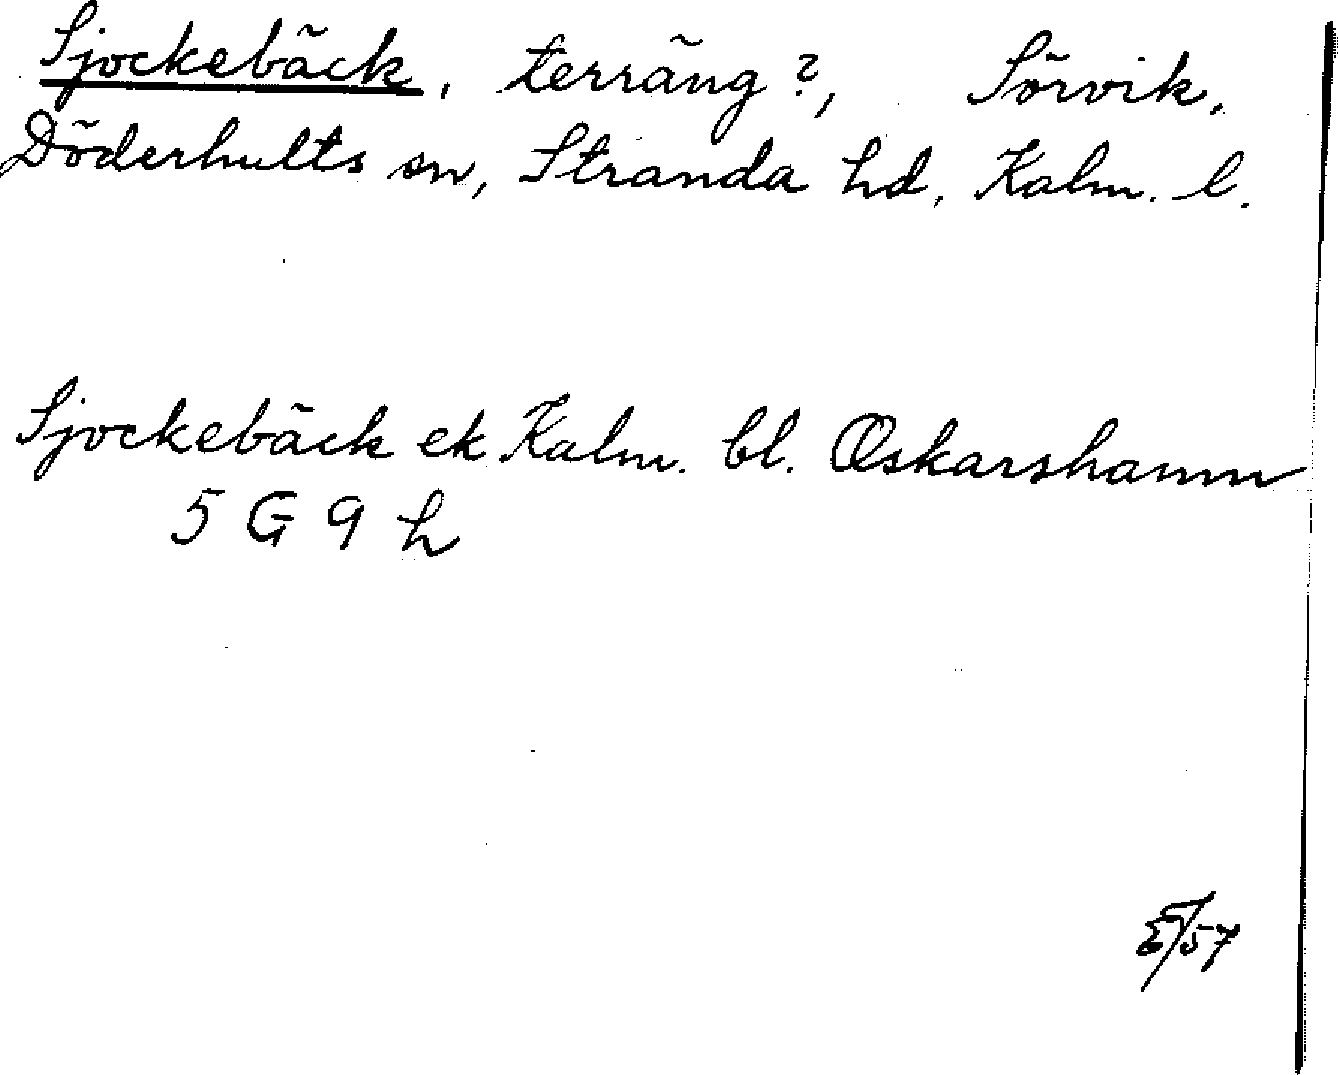 Sjockebäck, terräng?, Sörvik,
Döderhults sn, Stranda hd, Kalm. l.
Sjockebäck ek Kalm. bl. Oskarshamn
5 G 9 h
/57